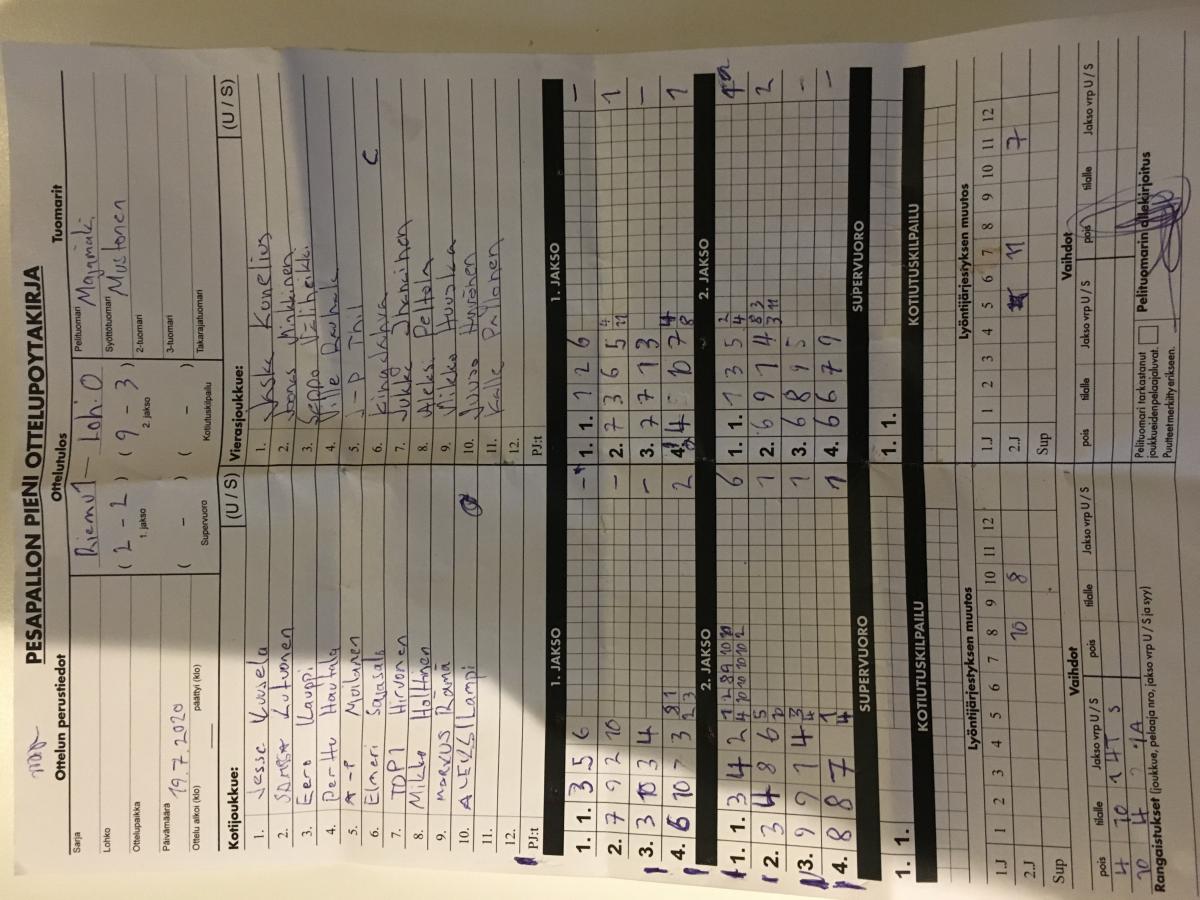 PESÄPALLON PIENI OTTELUPÖYTÄKIRJA
Ottelun perustiedot
Ottelutulos
Tuomarit
Sarja
Lohko
Ottelupaikka
Päivämäärä 19.7.2020
Ottelu alkoi (klo) päättyi (klo)
Riemu1 - Lohi.O
( 2 - 2 ) ( 9 - 3 )
1. jakso 2. jakso
( - ) ( - )
Supervuoro Kotiutuskilpailu
Pelituomari Majamäki
Syöttötuomari Mustonen
2-tuomari
3-tuomari
Takarajatuomari
Kotijoukkue: (U / S)
1. Jesse Kuusela
2. SAMPSA Lutvonen
3. Eero Kauppi
4. Perttu Hautala
5. A-P Moilanen
6. Elmeri Salasalo
7. TOPI Hirvonen
8. Mikko Holttinen
9. MARKUS Rämä
10. ALEKSI Lampi
11.
12.
PJ:t
Vierasjoukkue: (U / S)
1. Jaska Kunelius
2. Joonas
3. Seppo Väliheikki
4. Ville
5. J-P
6. Kingi C
7. Jukka Ihanainen
8. Aleksi Peltola
9. Mikko Huuska
10. Juuso
11. Kalle
12.
PJ:t
1. JAKSO
1. 1. 3 5 6 -
2. 7 9 2 10 -
3. 3 10 3 4 -
4. 6 10 7 3 2
1. JAKSO
1. 1. 1 2 6 -
2. 7 3 6 5 1
3. 7 7 1 3 -
4. 4 10 7 1
2. JAKSO
1. 1. 3 4 2 6
2. 3 4 8 6 1
3. 9 9 1 4 1
4. 8 8 7 1
2. JAKSO
1. 1. 1 3 5
2. 6 9 1 4 2
3. 6 8 9 5 -
4. 6 6 7 9 -
SUPERVUORO
1. 1.
SUPERVUORO
1. 1.
KOTIUTUSKILPAILU
KOTIUTUSKILPAILU
Lyöntijärjestyksen muutos
1.J 1 2 3 4 5 6 7 8 9 10 11 12
2.J 10 8
Sup
Lyöntijärjestyksen muutos
1.J 1 2 3 4 5 6 7 8 9 10 11 12
2.J 11 7
Sup
Vaihdot
pois tilalle Jakso vrp U / S pois tilalle Jakso vrp U / S
4 10 1 4T S
10 4
Vaihdot
pois tilalle Jakso vrp U / S pois tilalle Jakso vrp U / S
Rangaistukset (joukkue, pelaaja nro, jakso vrp U / S ja syy)
Pelituomari tarkastanut
joukkueiden pelaajaluvat.
Puutteet merkitty erikseen.
Pelituomarin allekirjoitus